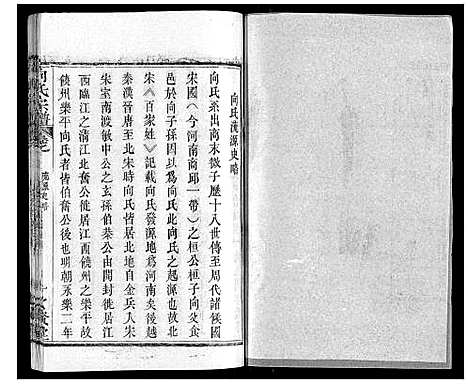 向氏源流史略
向氏系出商末微子歷十八世傳至周代諸侯國
宋國（今河南商邱一帶）之桓公桓子向父食
邑於向子孫因以為向氏此向氏之起源也故北
宋《百家姓》記載向氏發源地為河南矣後越
秦漢晉唐至北宋時向氏皆居北地自金兵入宋
朱室南渡敏中公之玄孫伯恭公由開封徙居江
西臨江之清江北奮公徙居江西饒州之樂平故
饒州樂平向氏者皆伯奮公後也明朝永樂二年
向氏宗譜
源流史略